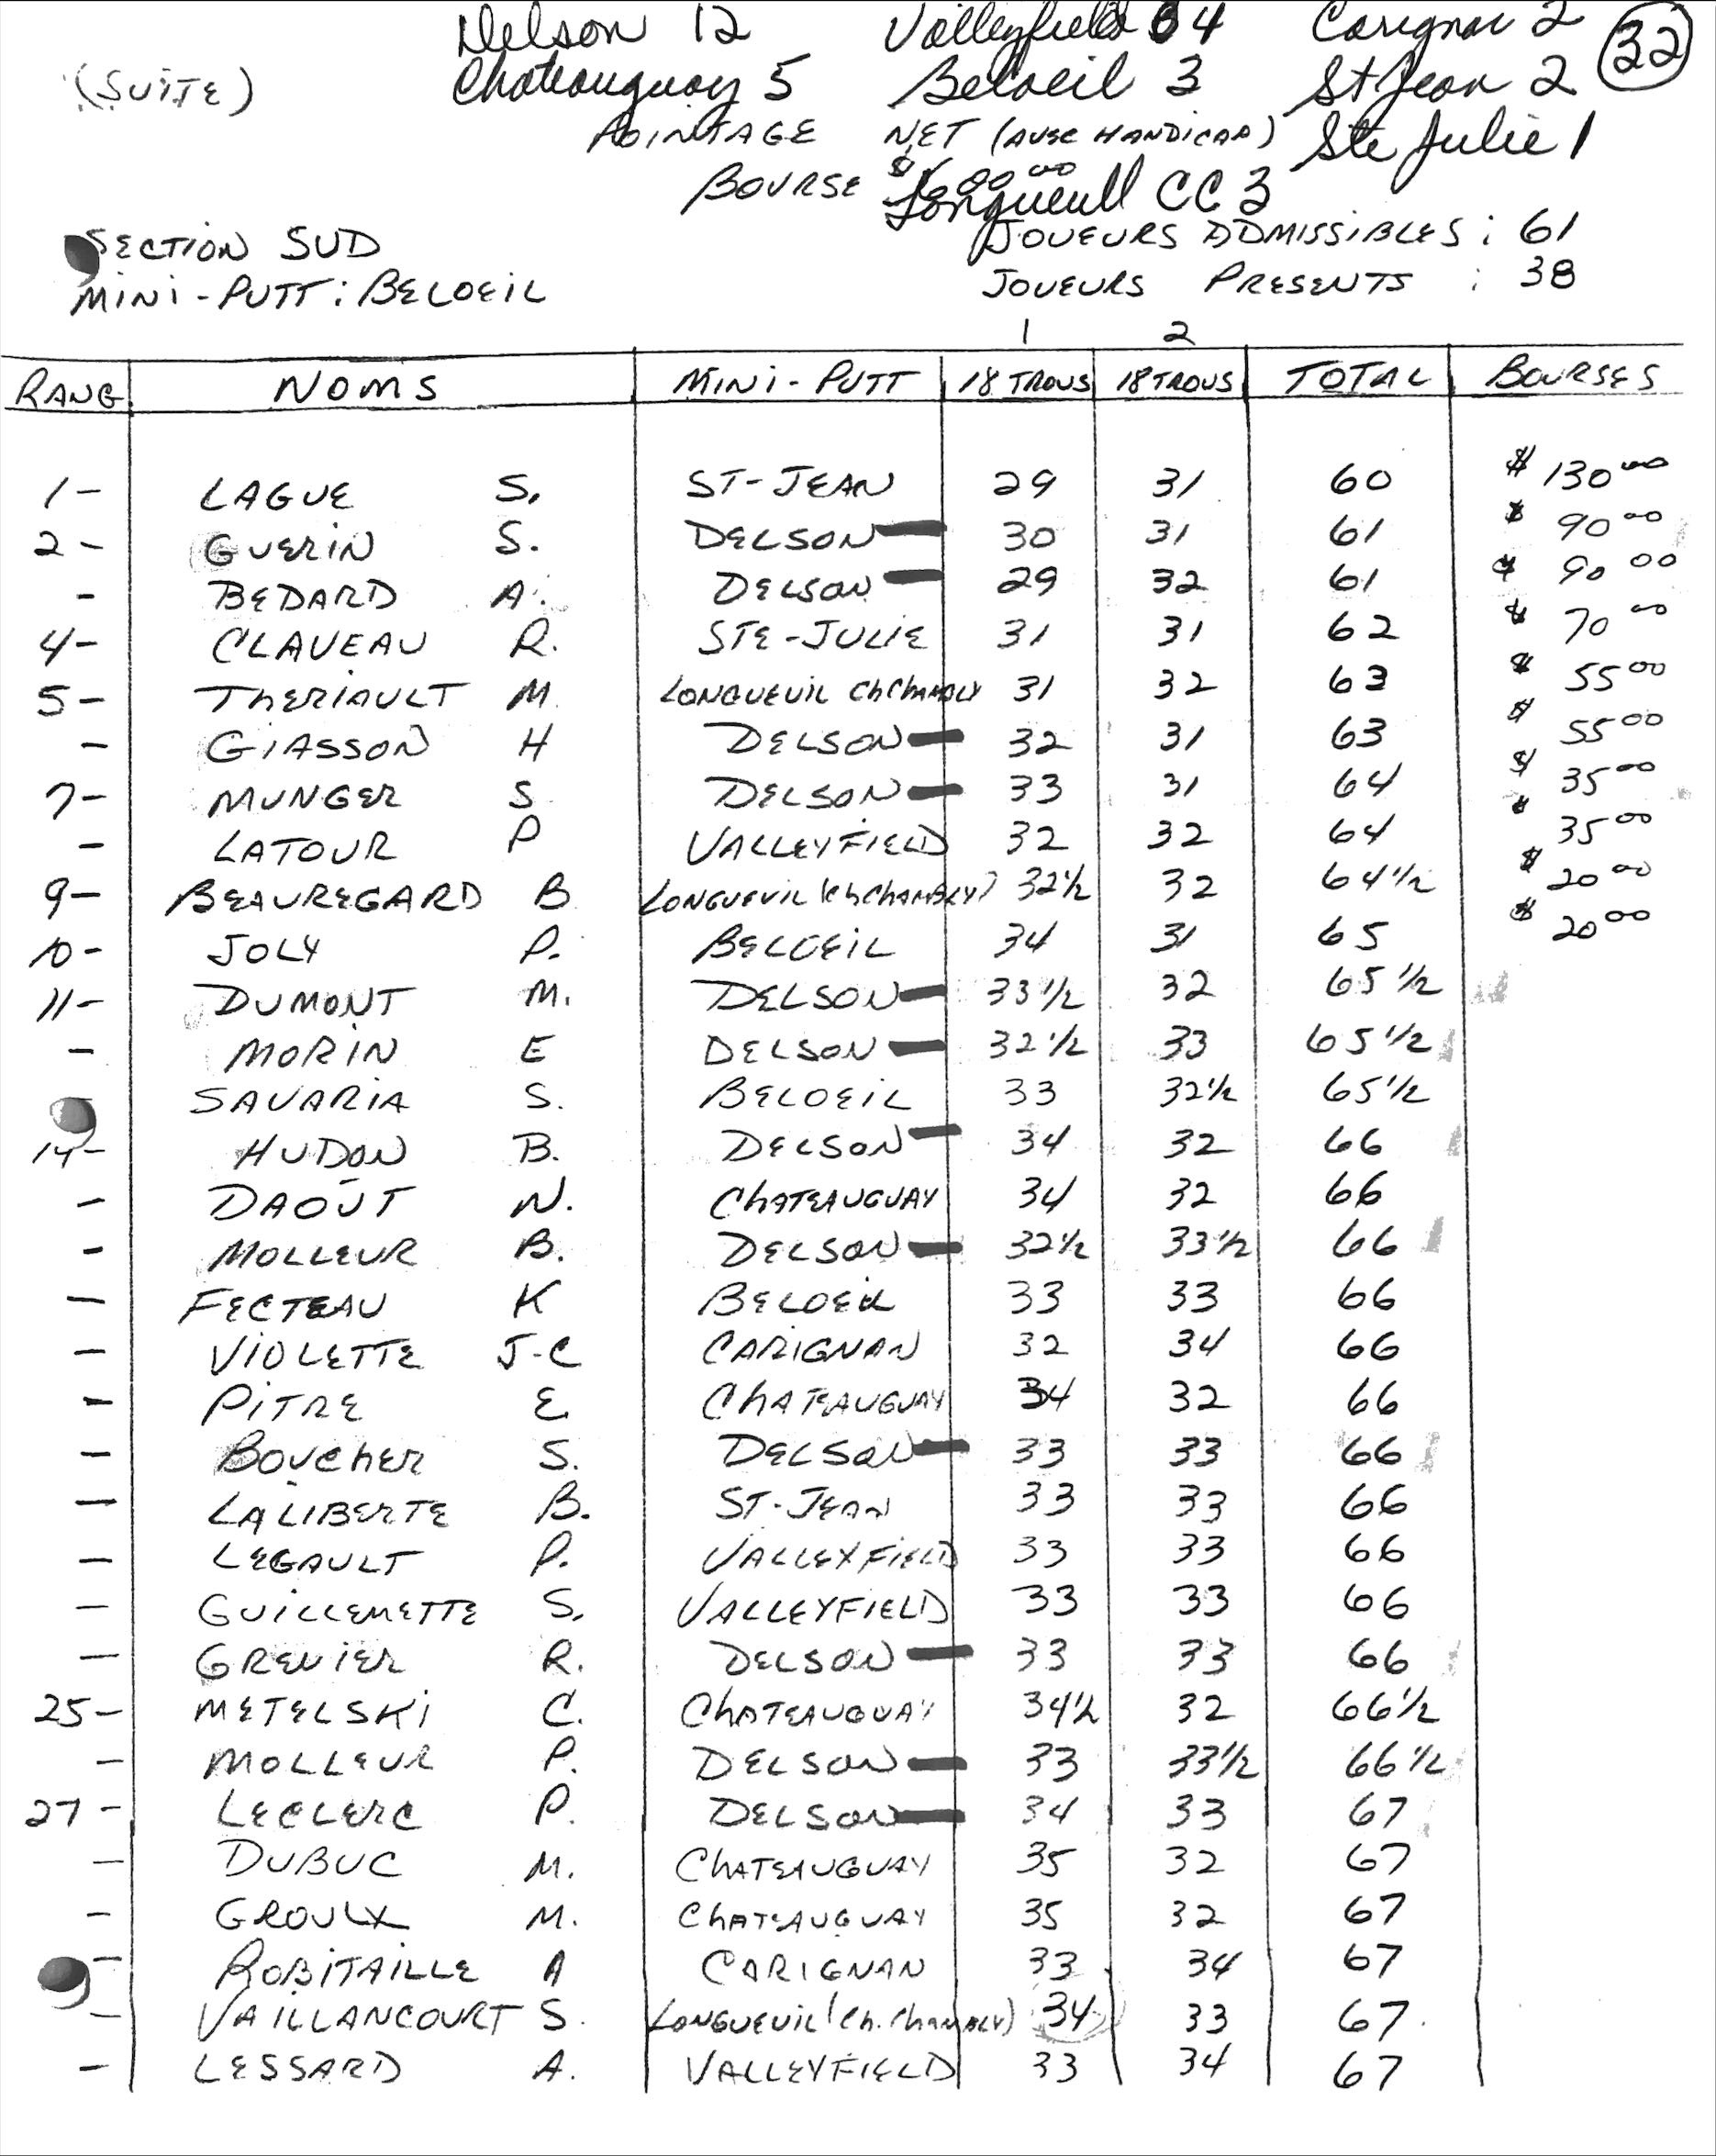 Delson 12 Valleyfield 4 Carignan 2 32
(SUITE) Chateauguay 5 Beloeil 3 St Jean 2
POINTAGE NET (AVEC HANDICAP) Ste Julie 1
BOURSE $ 600 00
Longueuil CC 3
SECTION SUD JOUEURS ADMISSIBLES : 61
MINI-PUTT : BELOEIL JOUEURS PRESENTS : 38
1 2
RANG NOMS MINI-PUTT 18 TROUS 18 TROUS TOTAL BOURSES
1- LAGUE S. ST-JEAN 29 31 60 $ 130 00
2- GUERIN S. DELSON 30 31 61 $ 90 00
- BEDARD A. DELSON 29 32 61 $ 90 00
4- CLAVEAU R. STE-JULIE 31 31 62 $ 70 00
5- THERIAULT M. LONGUEUIL Ch CHAMBLY 31 32 63 $ 55 00
- GIASSON H DELSON 32 31 63 $ 55 00
7- MUNGER S DELSON 33 31 64 $ 35 00
- LATOUR P VALLEYFIELD 32 32 64 $ 35 00
9- BEAUREGARD B LONGUEUIL (Ch CHAMBLY) 32 1/2 32 64 1/2 $ 20 00
10- JOLY P. BELOEIL 34 31 65 $ 20 00
11- DUMONT M. DELSON 33 1/2 32 65 1/2
- MORIN E DELSON 32 1/2 33 65 1/2
SAVARIA S. BELOEIL 33 32 1/2 65 1/2
14- HUDON B. DELSON 34 32 66
- DAOUT N. CHATEAUGUAY 34 32 66
- MOLLEUR B. DELSON 32 1/2 33 1/2 66
- FECTEAU K BELOEIL 33 33 66
- VIOLETTE J-C CARIGNAN 32 34 66
- PITRE E. CHATEAUGUAY 34 32 66
- BOUCHER S. DELSON 33 33 66
- LALIBERTE B. ST-JEAN 33 33 66
- LEGAULT P. VALLEYFIELD 33 33 66
- GUILLEMETTE S. VALLEYFIELD 33 33 66
- GRENIER R. DELSON 33 33 66
25- METELSKI C. CHATEAUGUAY 34 1/2 32 66 1/2
- MOLLEUR P. DELSON 33 33 1/2 66 1/2
27- LECLERC P. DELSON 34 33 67
- DUBUC M. CHATEAUGUAY 35 32 67
- GROULX M. CHATEAUGUAY 35 32 67
- ROBITAILLE A CARIGNAN 33 34 67
- VAILLANCOURT S. LONGUEUIL (Ch. CHAMBLY) 34 33 67
- LESSARD A. VALLEYFIELD 33 34 67